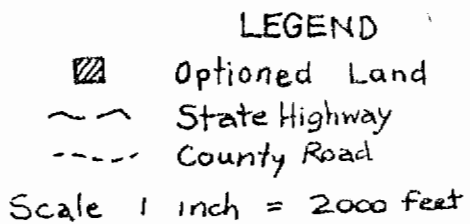 LEGEND
Optioned Land
State Highway
County Road
Scale 1 inch = 2000 feet